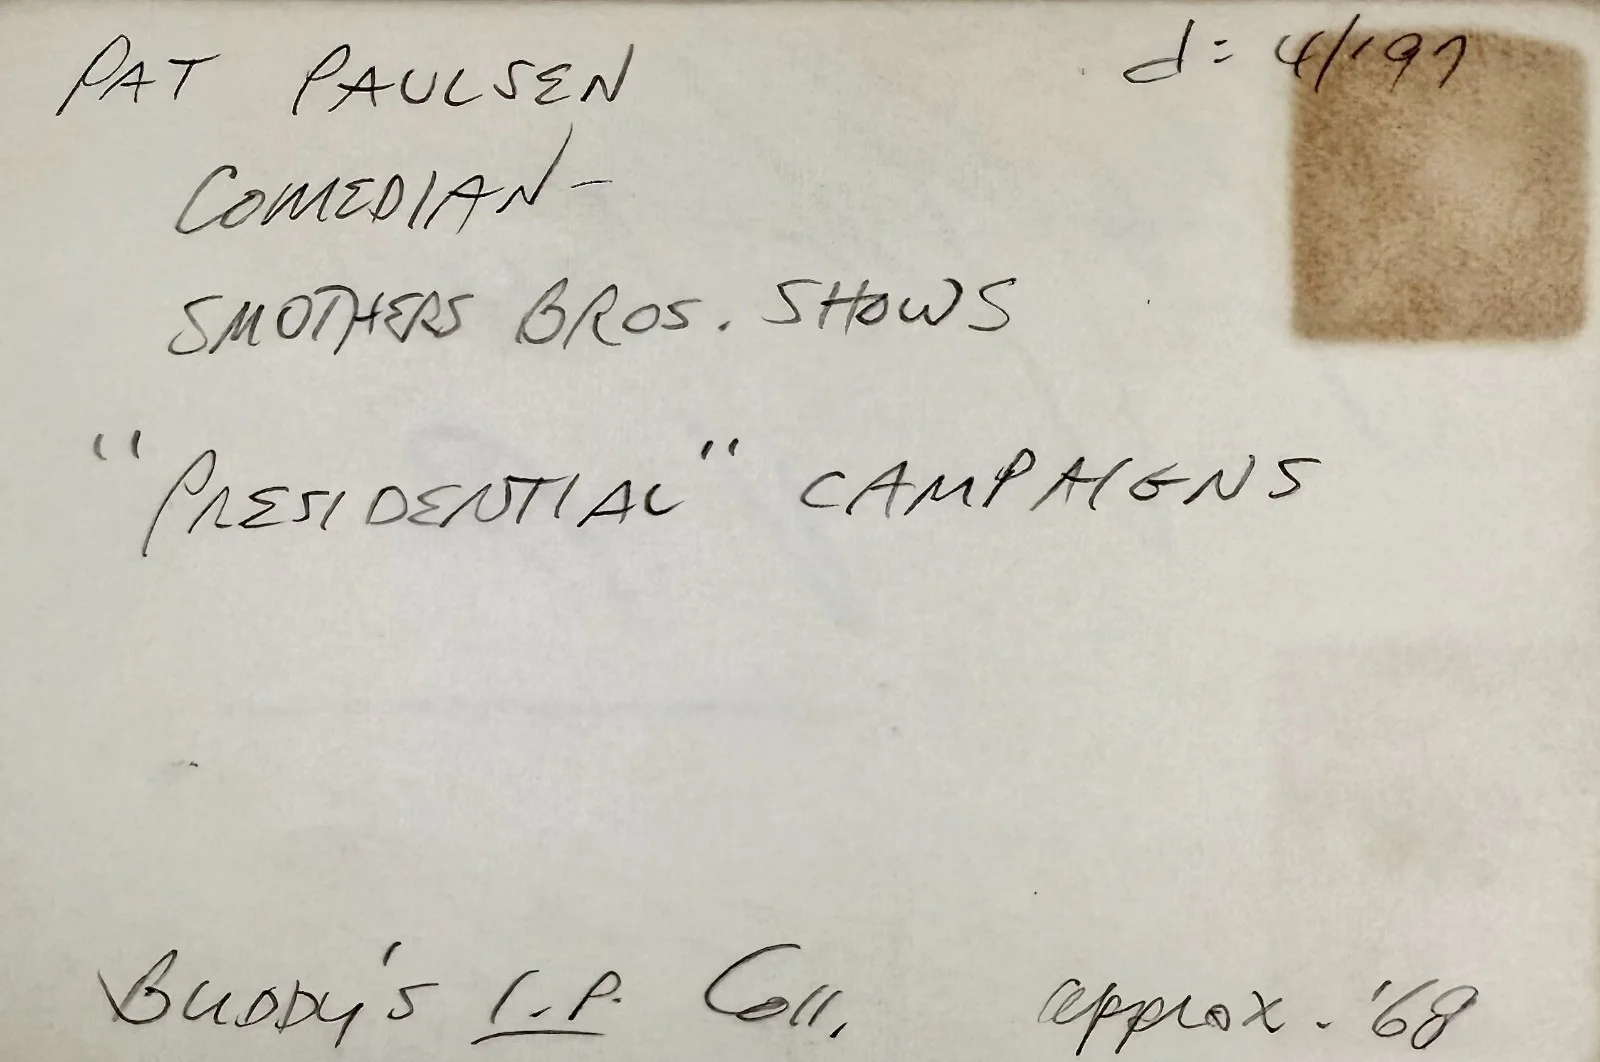 PAT PAULSEN d: 4/'97
COMEDIAN-
SMOTHERS BROS. SHOWS
"PRESIDENTIAL" CAMPAIGNS
BUDDY'S I.P. Coll. approx. '68